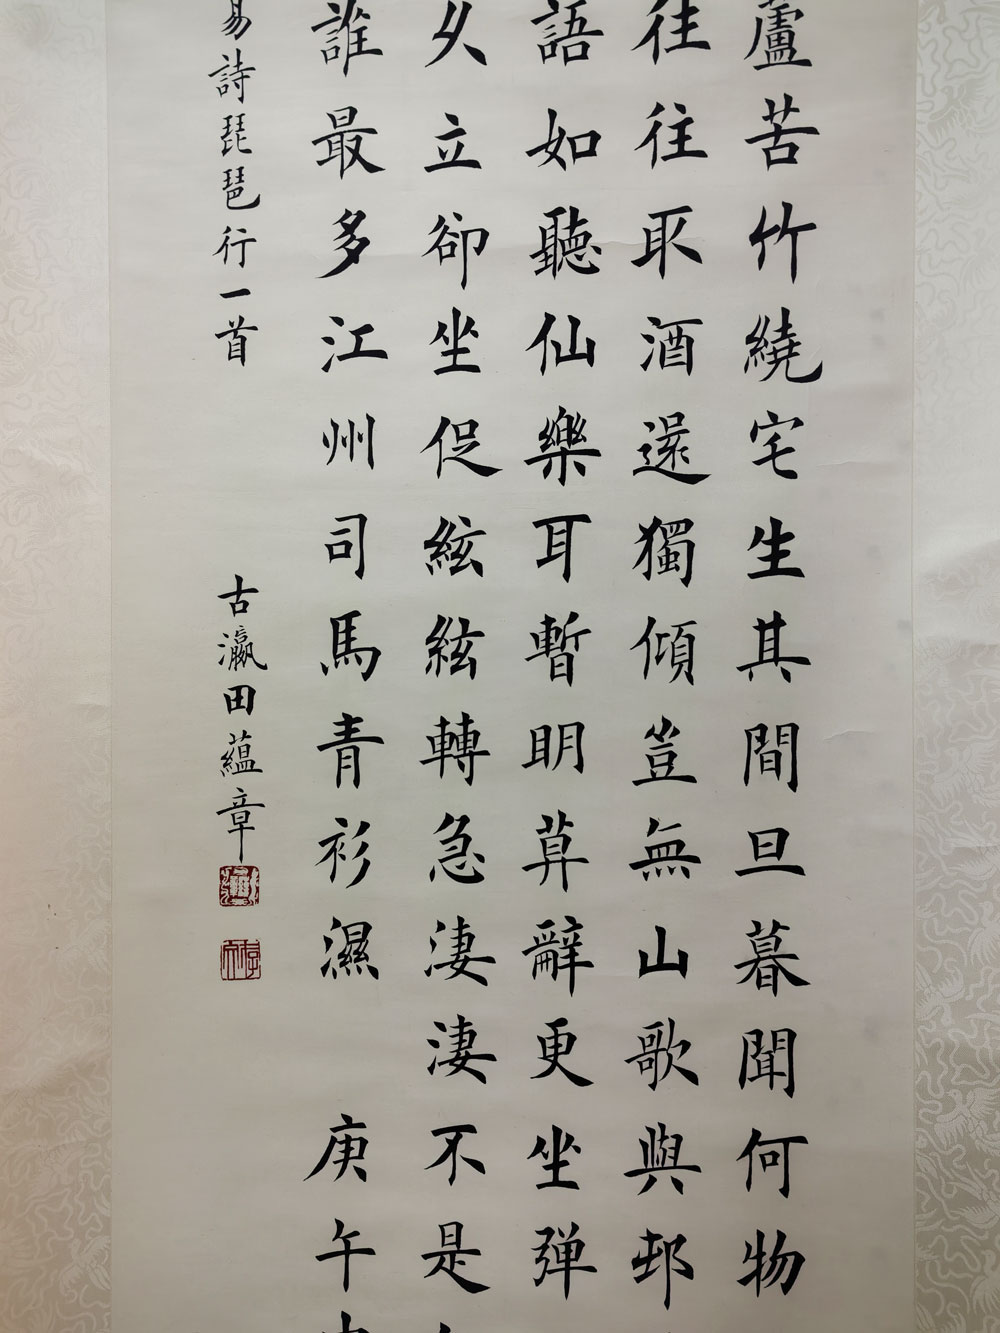 蘆苦竹繞宅生其間旦暮聞何物
往往取酒還獨傾豈無山歌與邨
語如聽仙樂耳暫明莫辭更坐弹
久立卻坐促絃絃轉急淒淒不是
誰最多江州司馬青衫濕 庚午
易詩琵琶行一首 古瀛田蘊章